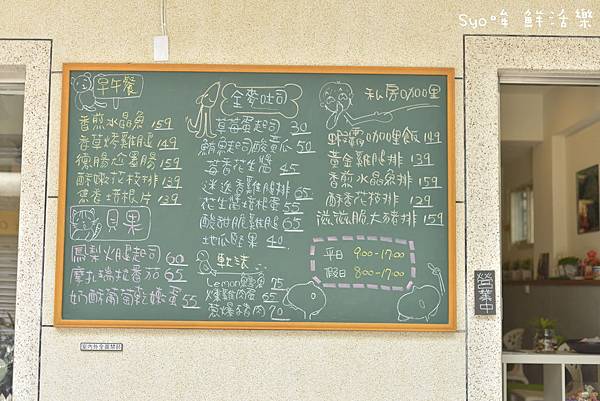 Syo哞 鮮活樂
早午餐
香煎水晶魚 159
香草烤雞腿 149
德腸佐薯腸 159
酥嫩花枝排 139
燻香培根片 139
貝果
鳳梨火腿起司 60
摩扎瑞拉番茄 65
奶酥葡萄乾嫩蛋 55
全麥吐司
草莓蛋起司 30
鮪魚起司酸黃瓜 50
莓香花生醬 45
迷迭香雞腿排 65
花生醬培根蛋 55
酸甜脆雞腿 65
地瓜蘋果 40
軟法
Lemon鮪魚 75
燻雞肉蛋 65
蔥爆豬肉 70
私房咖哩
蝦霸咖哩飯 149
黃金雞腿排 139
香煎水晶魚排 159
酥香花枝排 129
滋滋脆大豬排 159
平日 9:00-17:00
假日 8:00-17:00
營業中
室內外全面禁菸